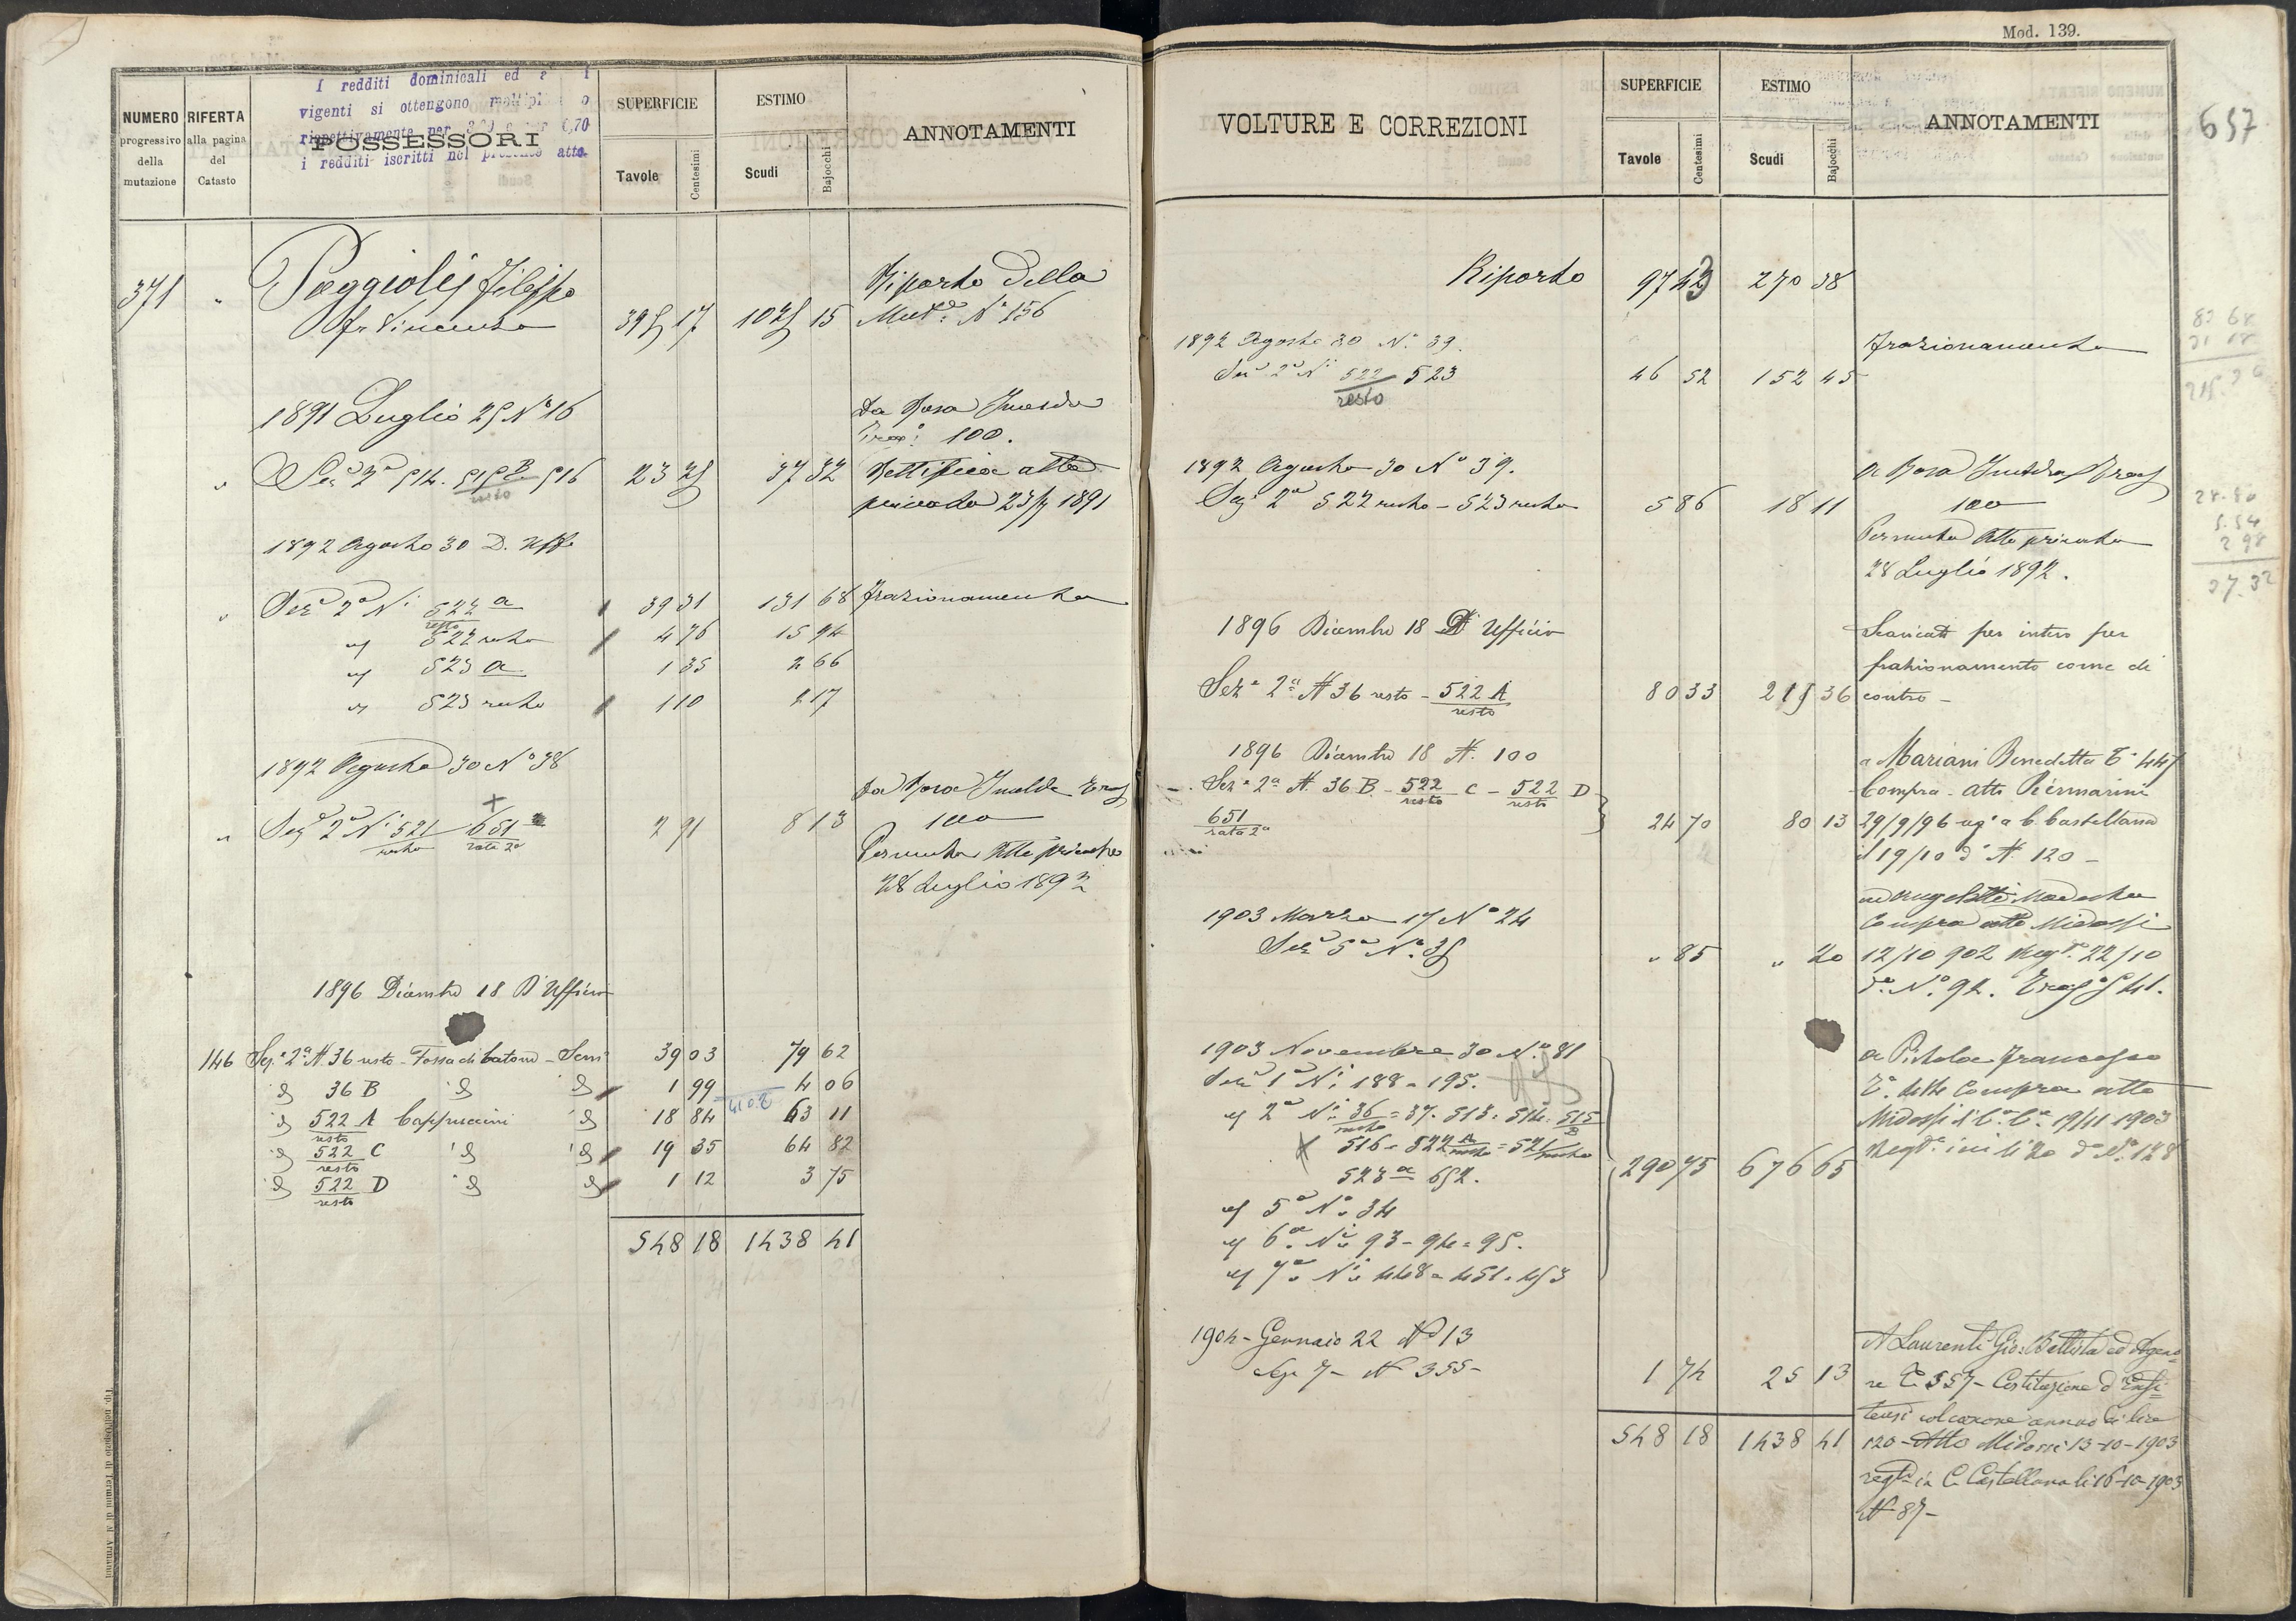 Mod. 139.
637
NUMERO
progressivo
della
mutazione
RIFERTA
alla pagina
del
Catasto
I redditi dominicali ed
vigenti si ottengono
rispettivamente per
POSSESSORI
i redditi iscritti nel presente atto.
SUPERFICIE
Tavole Centesimi
ESTIMO
Scudi Bajocchi
ANNOTAMENTI
371 " Poggioli Filippo
fu Vincenzo 395 17 1025 15
Riporto della
Mut.e N° 156
1891 Luglio 25 N° 16
Da Rosa Imelda
Tras: 100.
" Sez 2a 514. 515 B 516 23 25 37 32 Rettifica atto
resto
privato 23/7 1891
1892 Agosto 30 D. Uff
" Sez 2a Ni 522 a 39 31 131 68 frazionamento
resto
" 522 resto 4 76 15 94
" 523 a 1 35 2 66
" 523 resto 1 10 2 17
1892 Agosto 30 N° 38
Da Rosa Imelda Tras
100
" Sez 2a Ni 521 651 2 91 8 13
resto rata 2a
Permuta Atto privato
28 Luglio 1892
1896 Dicembre 18 D'Ufficio
146 Sez. 2a N 36 resto - Fossa di - Sem 39 03 79 62
36 B 1 99 4 06
522 A Cappuccini 18 84 63 11
resto
522 C 19 35 64 82
resto
522 D 1 12 3 75
resto
548 18 1438 41
Tip. nell'Ospizio di Termini di N. Armanni
VOLTURE E CORREZIONI
SUPERFICIE
Tavole Centesimi
ESTIMO
Scudi Bajocchi
ANNOTAMENTI
Riporto 97 43 270 38
1892 Agosto 30 N. 39.
frazionamento
Sez 2a Ni 522 523 46 52 152 45
resto
1892 Agosto 30 N° 39.
a Rosa Imelda Tras
Sez 2a 522 resto - 523 resto 5 86 18 11
100
Permuta Atto privato
28 Luglio 1892.
1896 Dicembre 18 D'Ufficio
Scaricati per intero per
frazionamento come di
Sez. 2a N 36 resto - 522 A 80 33 215 36 contro -
resto
1896 Dicembre 18 N. 100
a Mariani Benedetta T. 447
Sez. 2a N. 36 B - 522 C - 522 D
resto resto
Compra - atto Piermarini
651 24 70 80 13 29/9/96 a C. Castellana
rata 2a
il 19/10 N. 120 -
1903 Marzo 17 N° 24
Compra atto Midossi
Sez 5a N. 35 " 85 " 20 12/10 902 Reg. 22/10
N° 92. 
1903 Novembre 30 N° 81
a Pistola Francesco
Sez 1a Ni 188 = 195.
Compra atto
2a Ni 36 = 37. 513. 514. 515
resto B
Midossi 19/11 1903
516 = 522 A = 521
resto resto
290 75 676 65
N° 128
523 a 652.
5a N° 34
6a Ni 93 - 94 = 95.
7a Ni 448 = 451. 453
1904 - Gennaio 22 N° 13
A Laurenti Gio: Battista ed Ageno=
Sez 7 - N 355 - 1 74 25 13
re T. 557 - Costituzione d'Enfi=
teusi col canone annuo di lire
548 18 1438 41 120 - Atto Midossi 13-10-1903
in C. Castellana li 16-10-1903
N 87 -
28.86
5.54
2 98
37.32